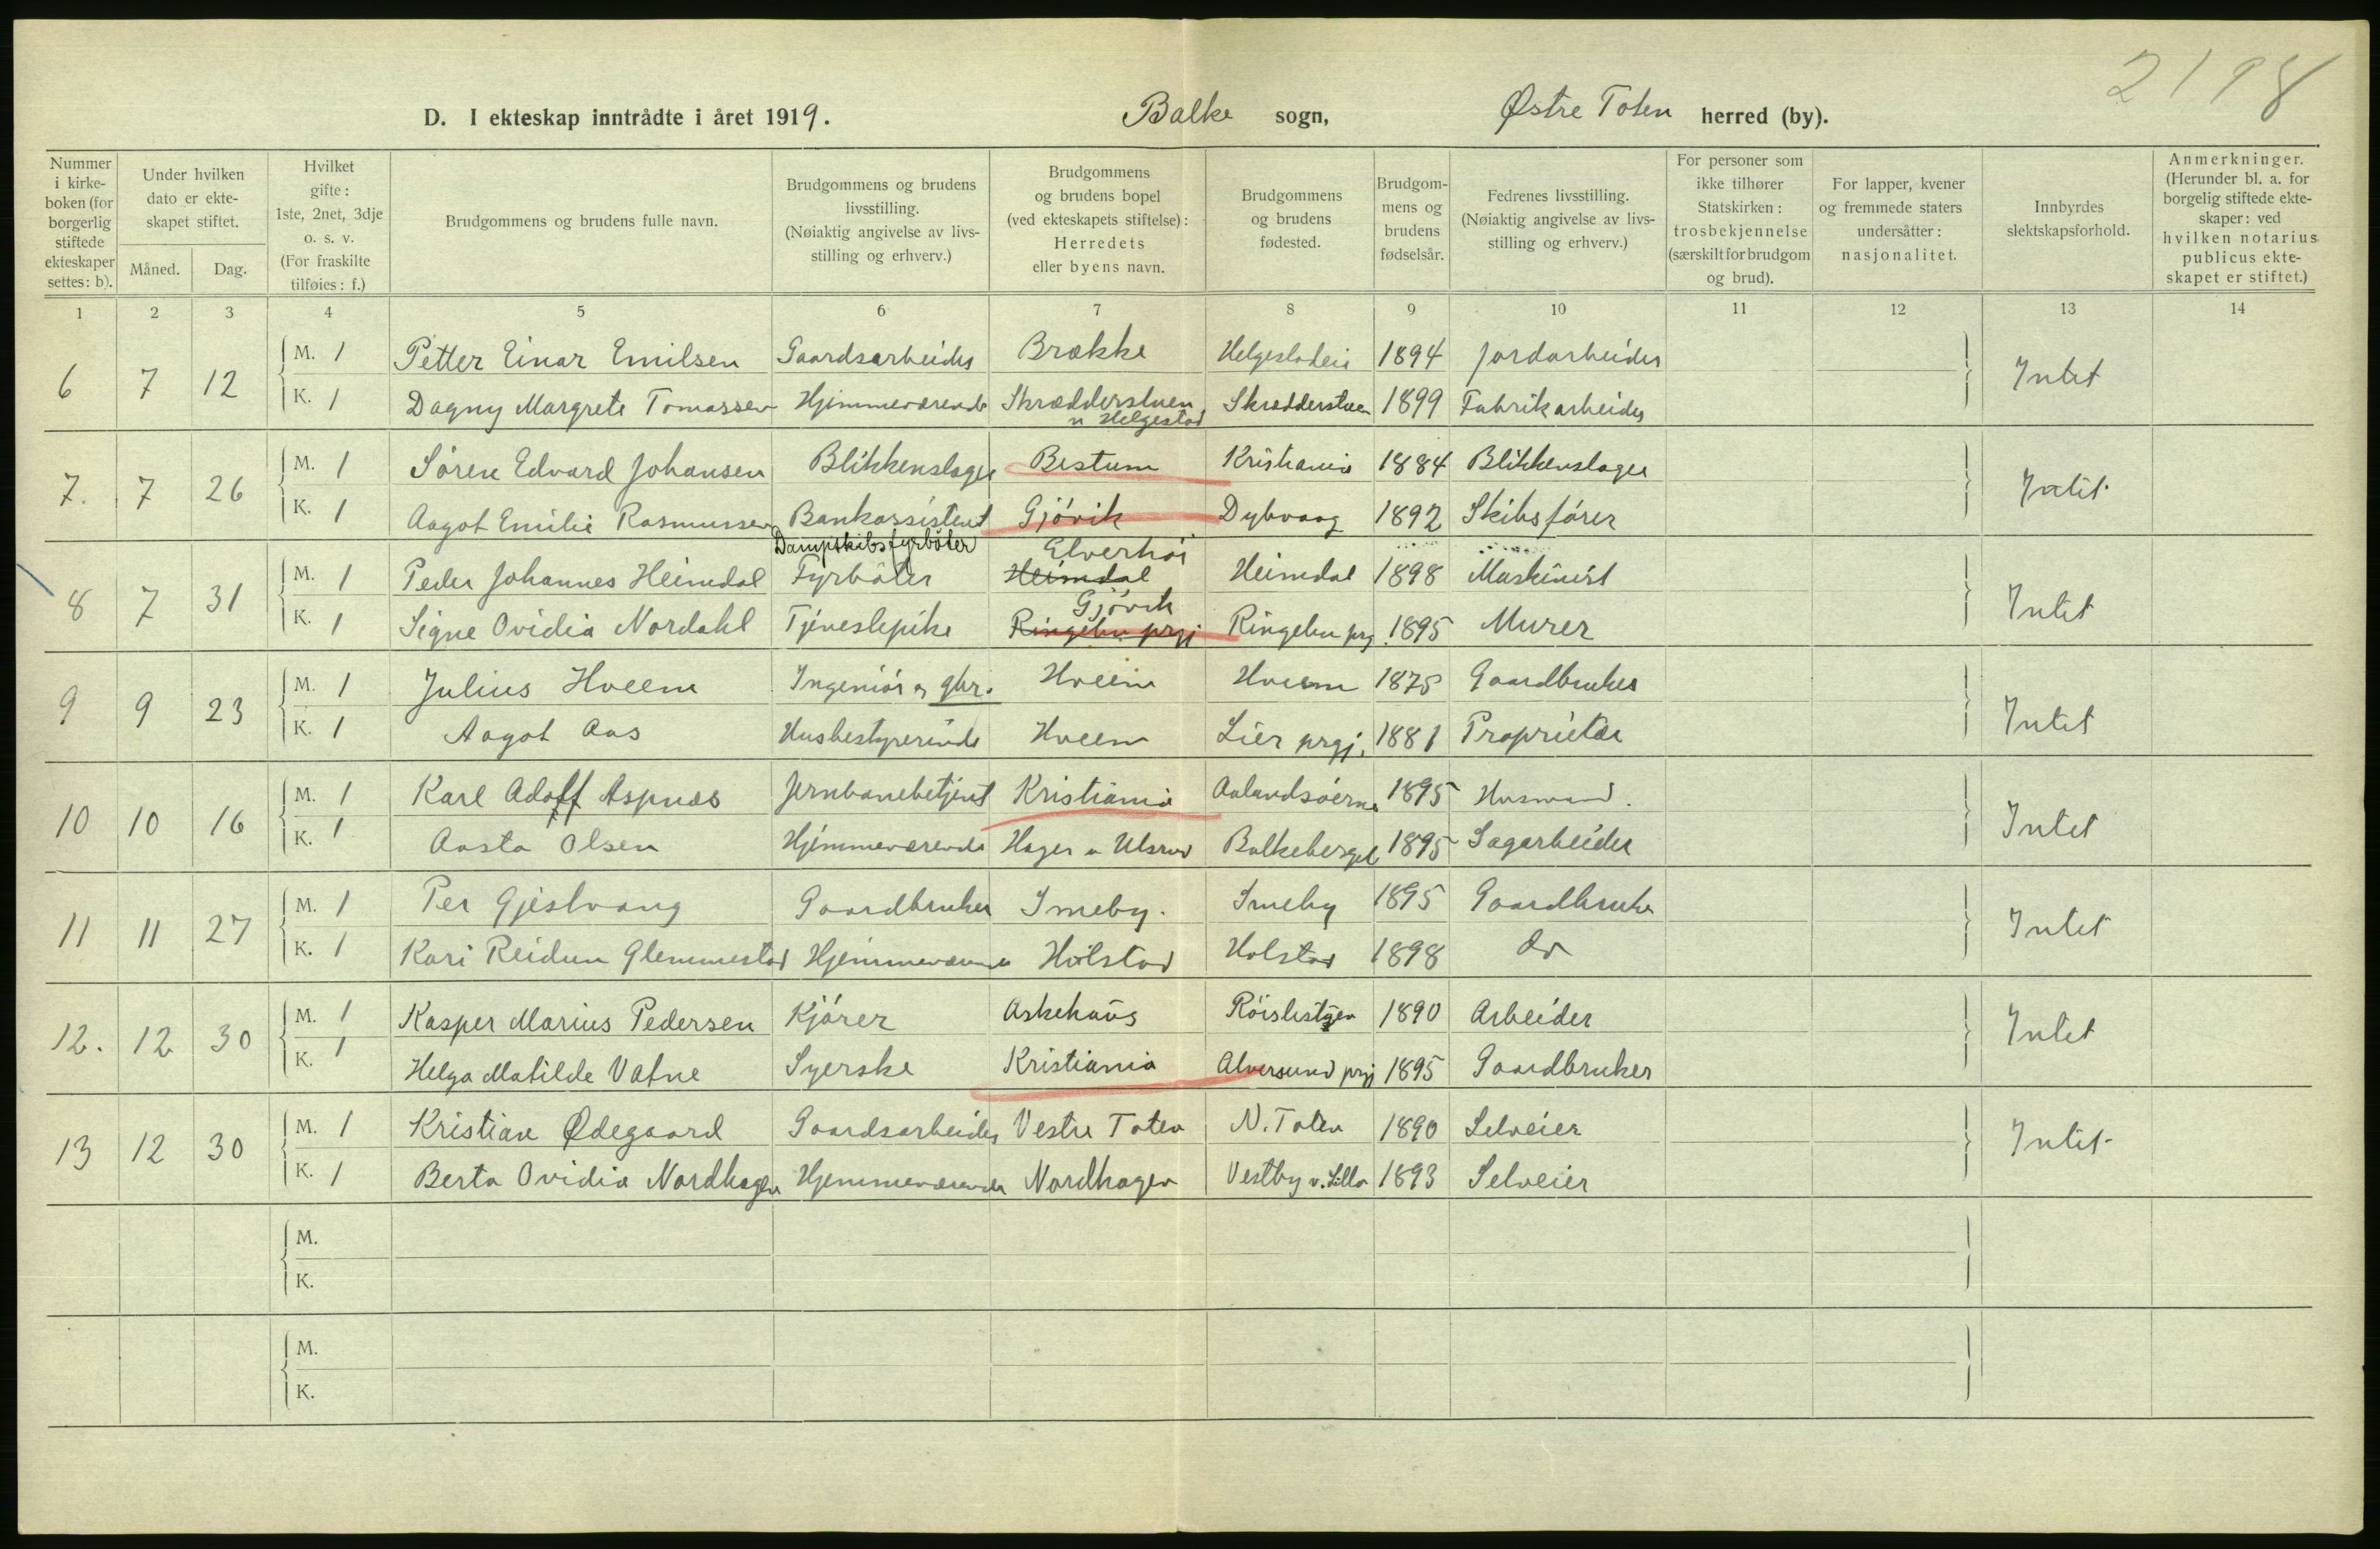 2198
D. I ekteskap inntrådte i året 1919. Balke sogn, Østre Toten herred (by).
Nummer i kirke-boken (for borgerlig stiftede ekteskaper settes: b).
Under hvilken dato er ekte-skapet stiftet.
Måned. Dag.
Hvilket gifte: 1ste, 2net, 3dje o. s. v. (For fraskilte tilføies: f.)
Brudgommens og brudens fulle navn.
Brudgommens og brudens livsstilling. (Nøiaktig angivelse av livs-stilling og erhverv.)
Brudgommens og brudens bopel (ved ekteskapets stiftelse): Herredets eller byens navn.
Brudgommens og brudens fødested.
Brudgom-mens og brudens fødselsår.
Fedrenes livsstilling. (Nøiaktig angivelse av livs-stilling og erhverv.)
For personer som ikke tilhører Statskirken: trosbekjennelse (særskilt for brudgom og brud).
For lapper, kvener og fremmede staters undersåtter: nasjonalitet.
Innbyrdes slektskapsforhold.
Anmerkninger. (Herunder bl. a. for borgelig stiftede ekte-skaper: ved hvilken notarius publicus ekte-skapet er stiftet.)
1 2 3 4 5 6 7 8 9 10 11 12 13 14
6 7 12 M. 1 Petter Einar Emilsen Gaardsarbeider Brække 1894 Jordarbeider Intet
K. 1 Dagny Margrete Tomassen Hjemmeværende Skrædderstuen u Helgestad Skrædderstuen 1899 Fabrikarbeider
7. 7 26 M. 1 Søren Edvard Johansen Blikkenslager Bestum Kristiania 1884 Blikkenslager Intet
K. 1 Aagot Emilie Rasmussen Bankassistent Gjøvik Dybvaag 1892 Skibsfører
8 7 31 M. 1 Peder Johannes Heimdal Dampskibsfyrbøter Fyrbøter Elverhøi Heimdal Heimdal 1898 Maskinist Intet
K. 1 Signe Ovidia Nordahl Tjenestepike Gjøvik Ringebu prgj Ringebu prg. 1895 Murer
9 9 23 M. 1 Julius Hveem Ingeniør og gbr. Hveem Hveem 1875 Gaardbruker Intet
K. 1 Aagot Aas Husbestyrerinde Hveem Lier prgj. 1881 Proprietær
10 10 16 M. 1 Karl Adolf Aspnæs Jernbanebetjent Kristiania 1895 Husmand. Intet
K. 1 Aasta Olsen Hjemmeværende Hagen u Ulsrud Balkeberget 1895 Sagarbeider
11 11 27 M. 1 Per Gjestvang Gaardbruker Smeby. Smeby 1895 Gaardbruker Intet
K. 1 Kari Reidun Glemmestad Hjemmeværende Holstad Holstad 1898 do
12. 12 30 M. 1 Kasper Marius Pedersen Kjører Askehaug 1890 Arbeider Intet
K. 1 Helga Matilde Vatne Syerske Kristiania Alversund prgj 1895 Gaardbruker
13 12 30 M. 1 Kristian Ødegaard Gaardsarbeider Vestre Toten N. Toten 1890 Selveier Intet
K. 1 Berta Ovidia Nordhagen Hjemmeværende Nordhagen Vestby v. Lilla 1893 Selveier
M.
K.
M.
K.